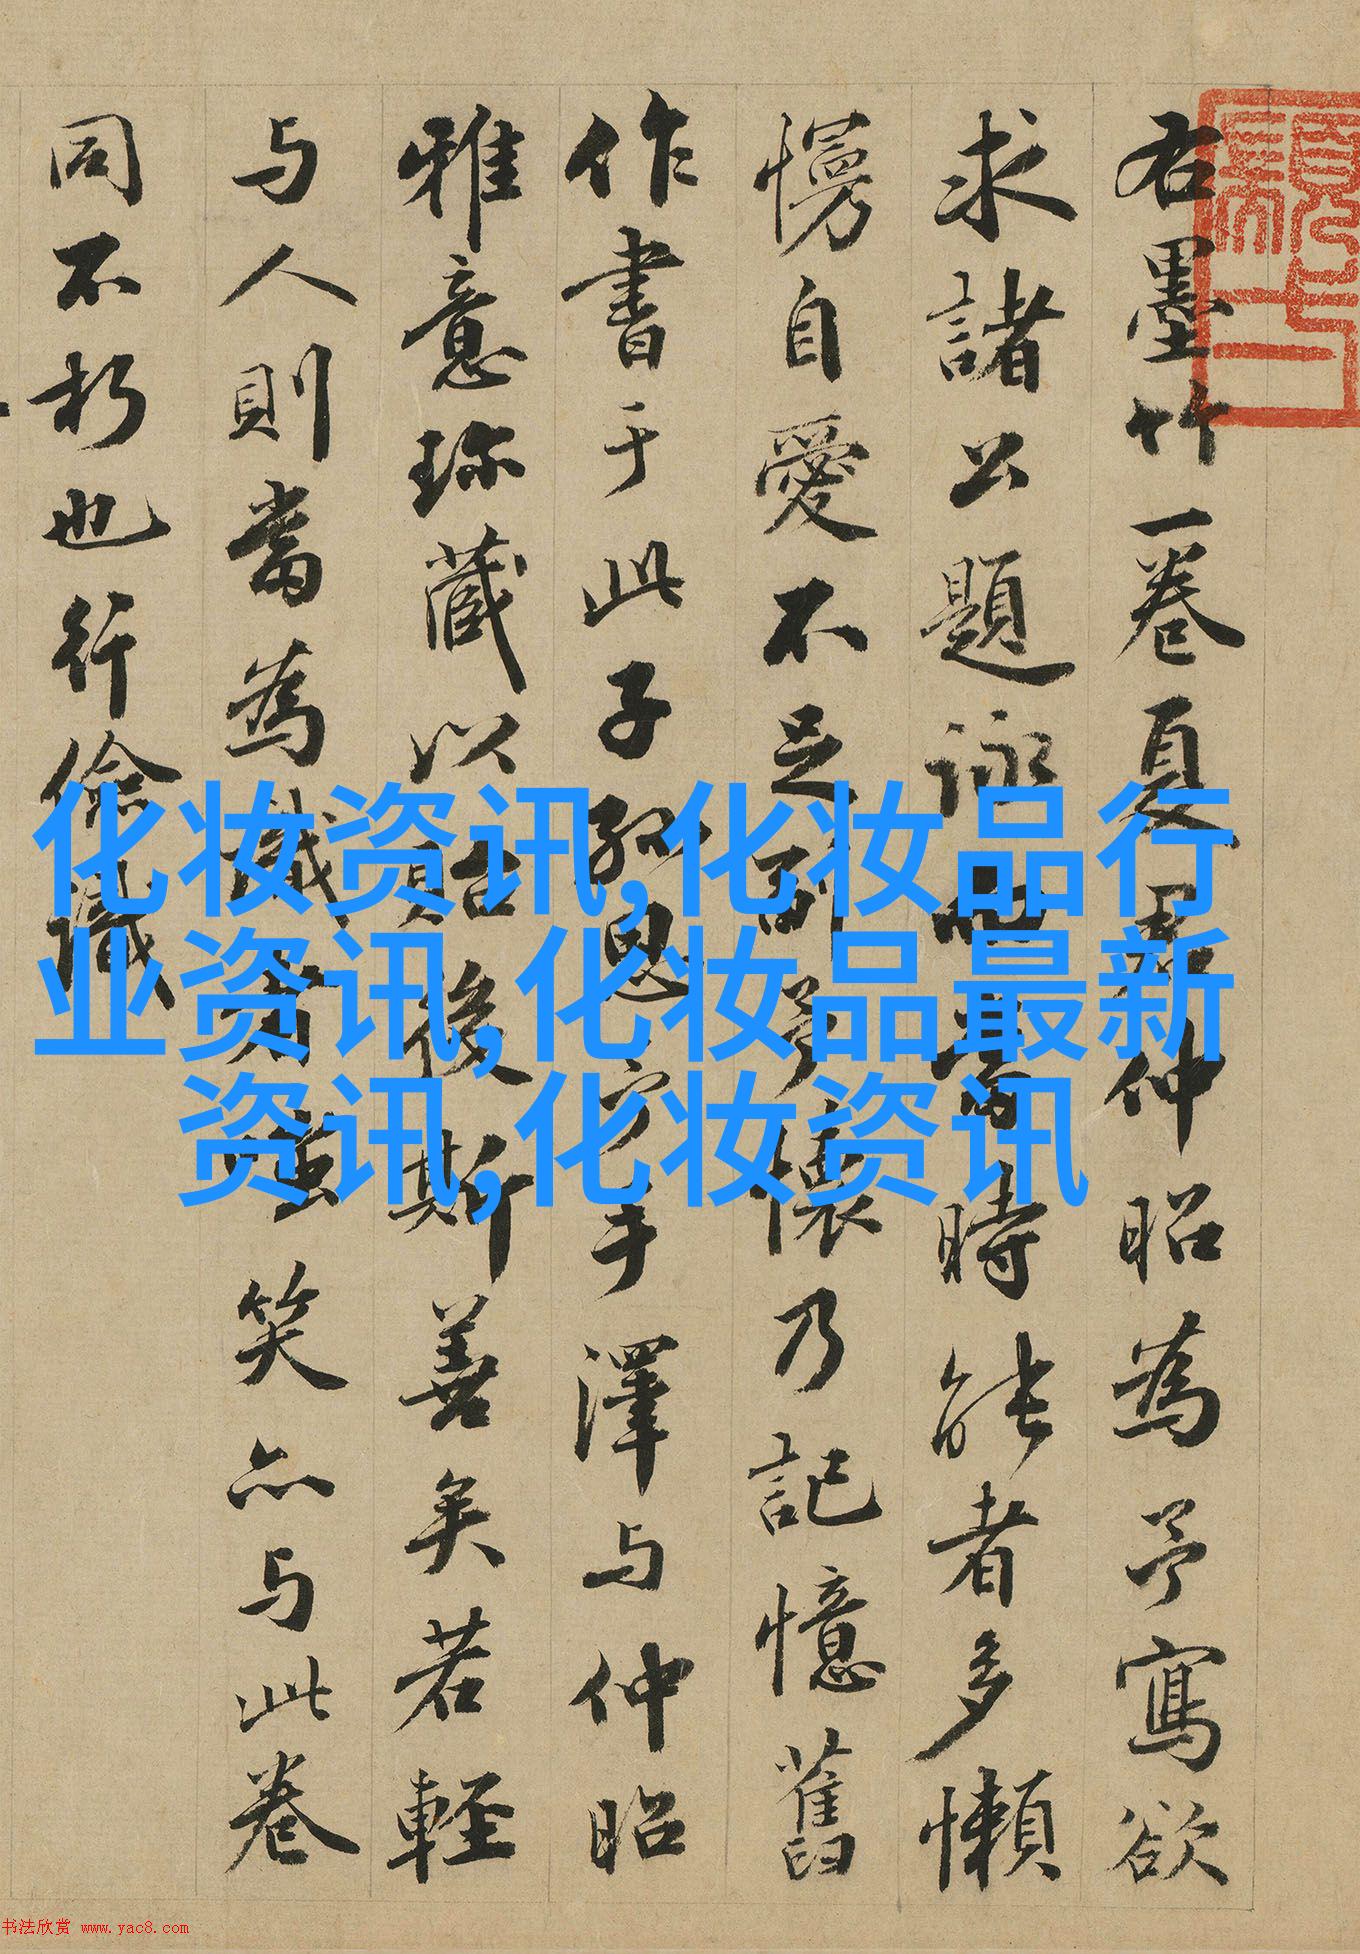 右墨竹一卷夏君仲昭為予寫欲
求諸公題詠當時能者多懶
慢自愛不足副予懷乃記憶舊
作書于此子孫思予手澤与仲昭
雅意珍藏以貽後斯善矣若輕
与人則當為識者嗤笑亦与此卷
同不朽也行儉識
化妆资讯,化妆品行
业资讯,化妆品最新
资讯,化妆资讯
书法欣赏 www.yac8.com